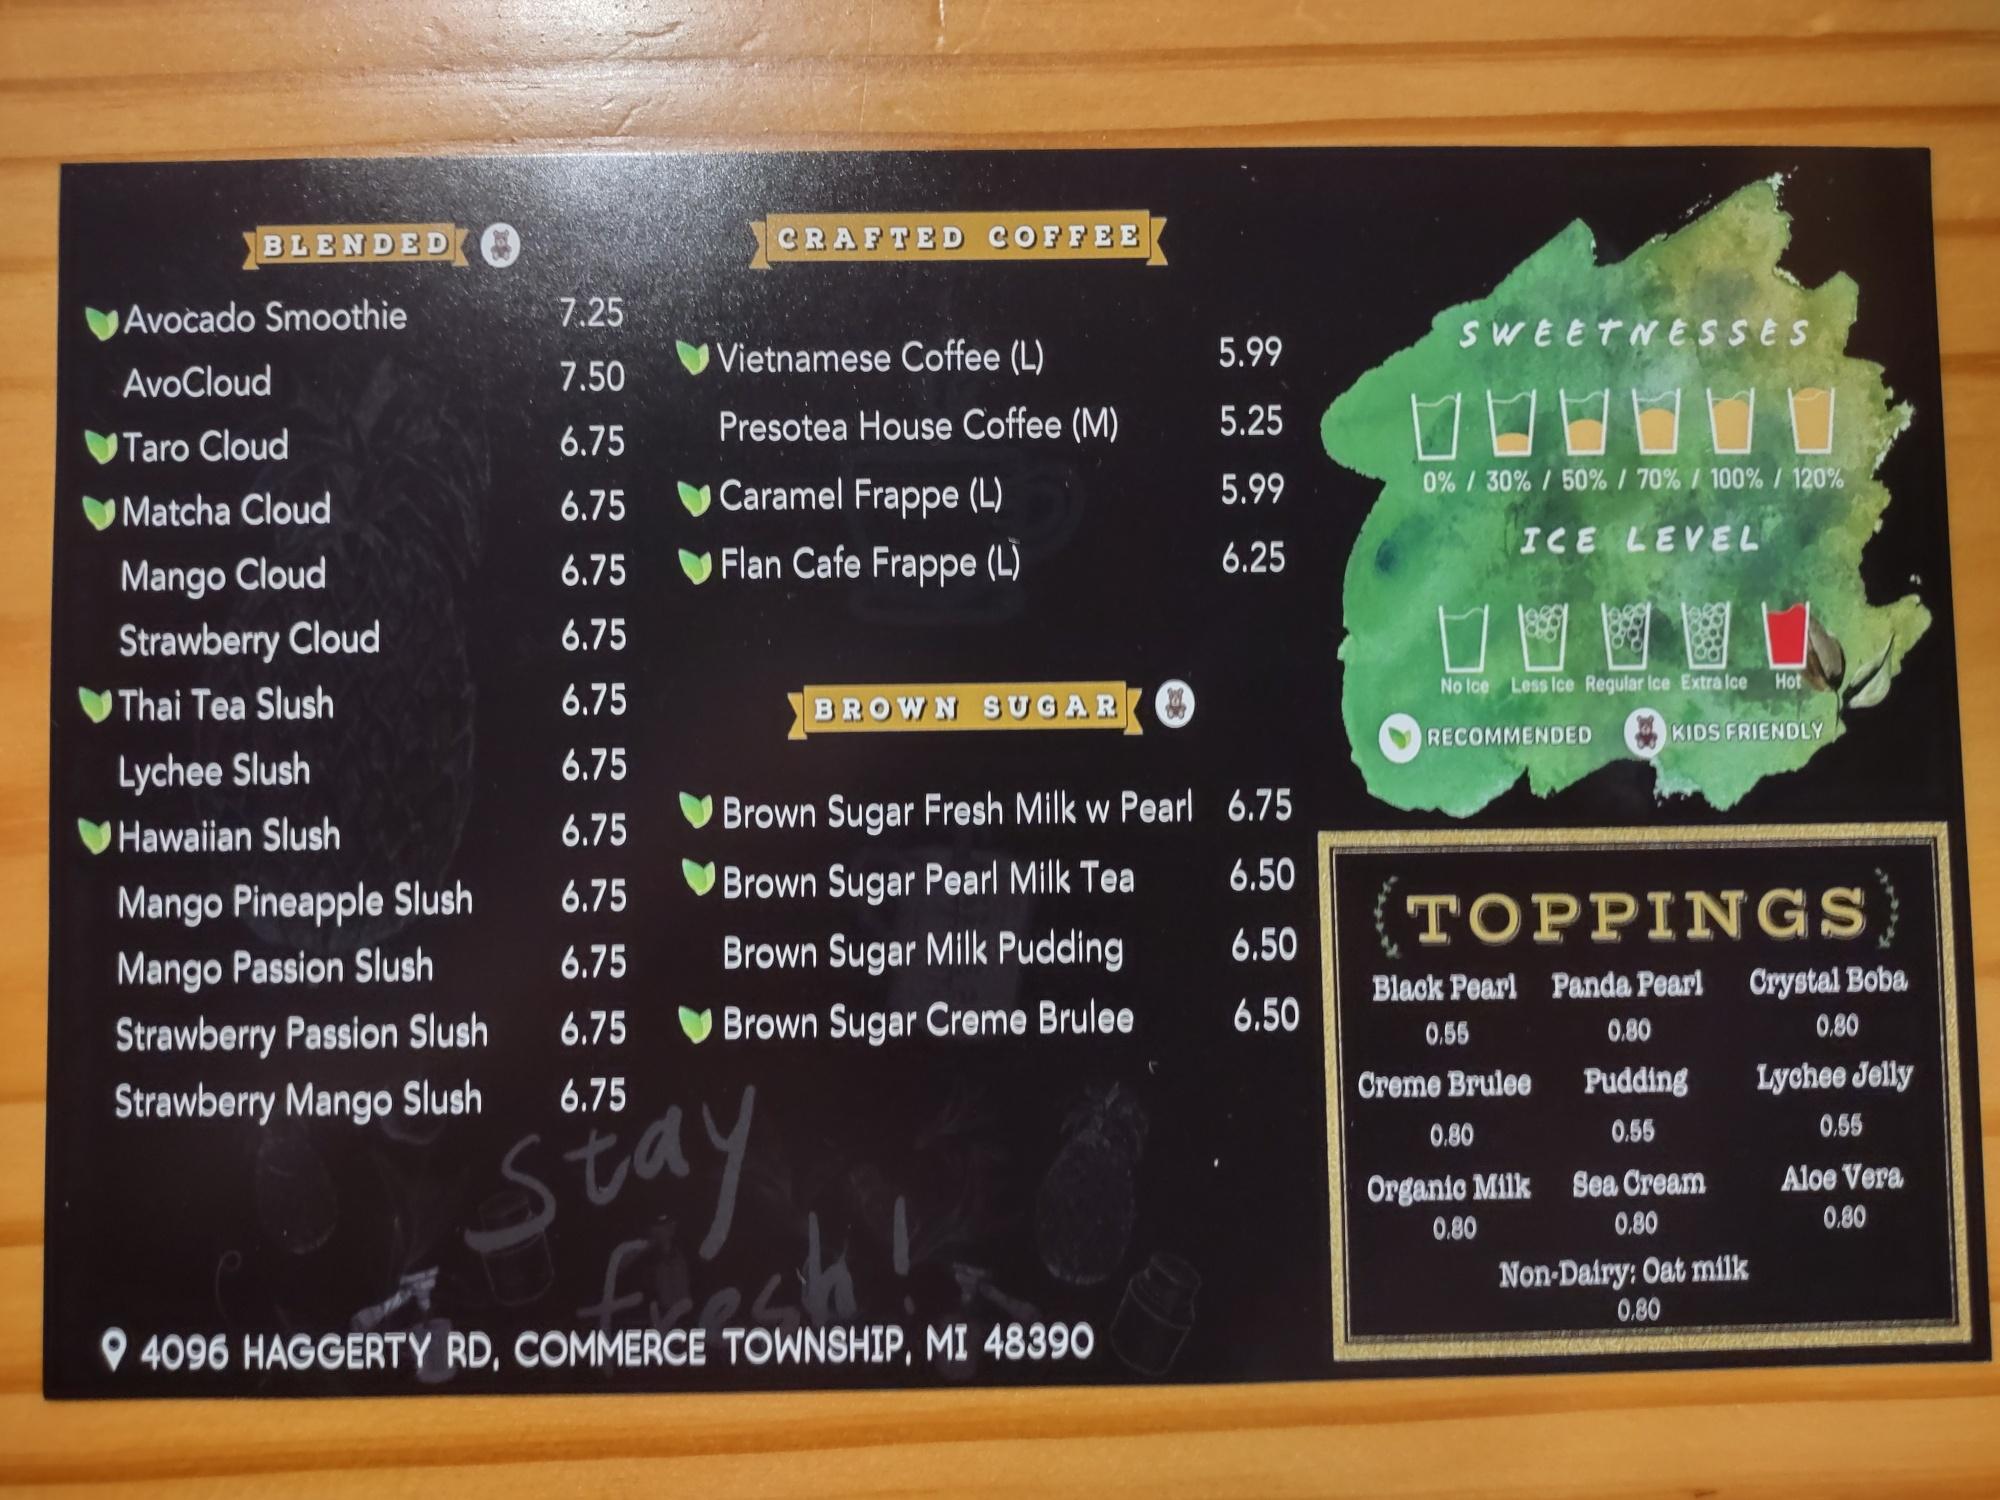 BLENDED
Avocado Smoothie 7.25
AvoCloud 7.50
Taro Cloud 6.75
Matcha Cloud 6.75
Mango Cloud 6.75
Strawberry Cloud 6.75
Thai Tea Slush 6.75
Lychee Slush 6.75
Hawaiian Slush 6.75
Mango Pineapple Slush 6.75
Mango Passion Slush 6.75
Strawberry Passion Slush 6.75
Strawberry Mango Slush 6.75
CRAFTED COFFEE
Vietnamese Coffee (L) 5.99
Presotea House Coffee (M) 5.25
Caramel Frappe (L) 5.99
Flan Cafe Frappe (L) 6.25
BROWN SUGAR
Brown Sugar Fresh Milk w Pearl 6.75
Brown Sugar Pearl Milk Tea 6.50
Brown Sugar Milk Pudding 6.50
Brown Sugar Creme Brulee 6.50
Stay
fresh!
4096 HAGGERTY RD, COMMERCE TOWNSHIP, MI 48390
SWEETNESSES
0% / 30% / 50% / 70% / 100% / 120%
ICE LEVEL
No Ice Less Ice Regular Ice Extra Ice Hot
RECOMMENDED KIDS FRIENDLY
TOPPINGS
Black Pearl Panda Pearl Crystal Boba
0.55 0.80 0.80
Creme Brulee Pudding Lychee Jelly
0.80 0.55 0.55
Organic Milk Sea Cream Aloe Vera
0.80 0.80 0.80
Non-Dairy: Oat milk
0.80